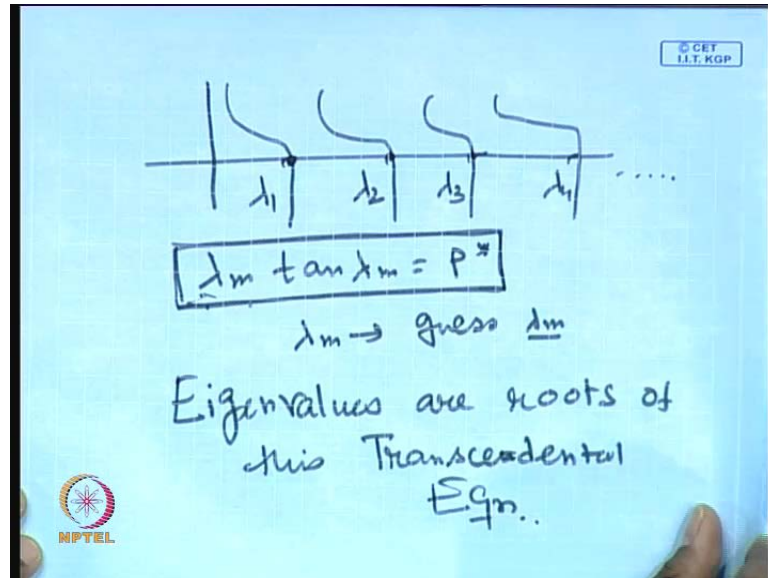 © CET
I.I.T. KGP
λ1 λ2 λ3 λ4 .....
λm tan λm = P*
λm → guess λm
Eigenvalues are roots of
this Transcendental
Eqn..
NPTEL